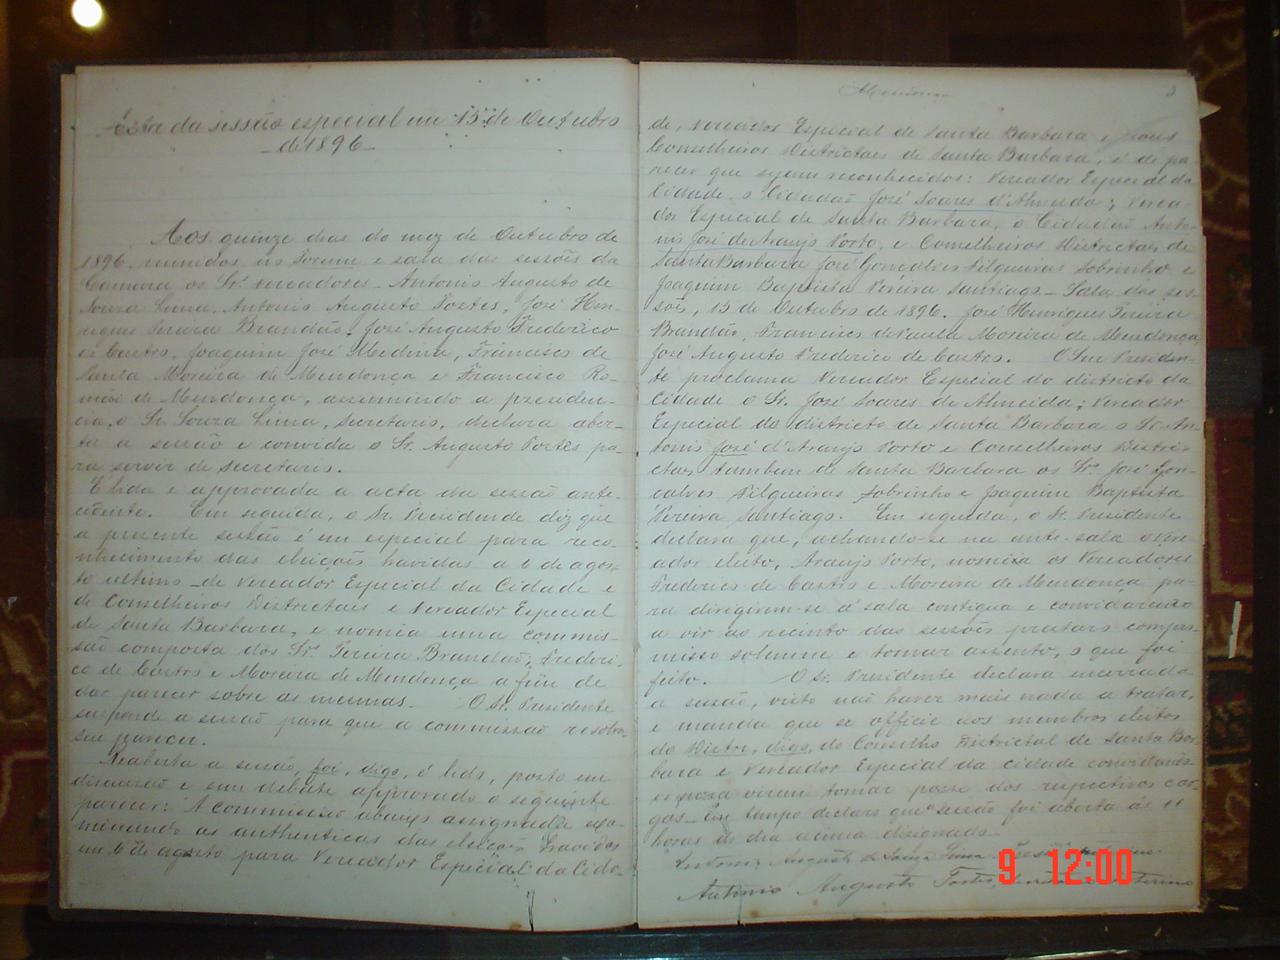 Acta da sessão especial em 15 de Outubro
de 1896
Aos quinze dias do mez de Outubro de
1896, reunidos no Forum e sala das sessões da
Camara os Srs. vereadores Antonio Augusto de
Souza Lima, Antonio Augusto Fortes, José Hen-
riques Pereira Brandão, José Augusto Frederico
de Castro, Joaquim José Medina, Francisco de
Paula Moreira de Mendonça e Francisco Ro-
mão de Mendonça, assumindo a presiden-
cia, o Sr. Souza Lima, secretario, declara aber-
ta a sessão e convida o Sr. Augusto Fortes pa-
ra servir de secretario.
É lida e approvada a acta da sessão ante-
cedente. Em seguida, o Sr. Presidende diz que
a presente sessão é em especial para reco-
nhecimento das eleições havidas a 6 de agos-
to ultimo de Vereador Especial da Cidade e
de Conselheiros Districtaes e Vereador Especial
de Santa Barbara, e nomeia uma commis-
são composta dos Srs. Pereira Brandão, Frederi-
co de Castro e Moreira de Mendonça a fim de
dar parecer sobre as mesmas. O Sr. Presidente
suspende a sessão para que a commissão
seu parecer.
Reaberta a sessão, foi, digo, é lido, posto em
discussão e sem debate approvado o seguinte
parecer: A commissão abaixo assignada exa-
minando as authenticas das eleições havidas
em 6 de agosto para Vereador Especial da Cida-
3
de, vereador Especial de Santa Barbara e para
Conselheiros Districtaes de Santa Barbara, é de pa-
recer que sejam reconhecidos: Vereador Especial da
Cidade o Cidadão José Soares d'Almeida; Verea-
dor Especial de Santa Barbara, o Cidadão Anto-
nio José de Araujo Porto, e Conselheiros Districtaes de
Santa Barbara José Gonçalves Filgueiras Sobrinho e
Joaquim Baptista Pereira Santiago. Sala das ses-
sões, 15 de Outubro de 1896. José Henriques Pereira
Brandão, Francisco de Paula Moreira de Mendonça,
José Augusto Frederico de Castro. O Snr Presiden-
te proclama Vereador Especial do districto da
Cidade o Sr. José Soares de Almeida; Vereador
Especial do districto de Santa Barbara o Sr. An-
tonio José d'Araujo Porto e Conselheiros Distri-
ctaes, tambem de Santa Barbara os Srs. José Gon-
calves Filgueiras Sobrinho e Joaquim Baptista
Pereira Santiago. Em seguida, o Sr. Presidente
declara que, achando-se na ante-sala o Vere-
ador eleito, Araujo Porto, nomeia os Vereadores
Frederico de Castro e Moreira de Mendonça pa-
ra dirigirem-se á sala contigua e convidarem-no
a vir ao recinto das sessões prestar compro-
misso solemne e tomar assento, o que foi
feito. O Sr. Presidente declara encerrada
a sessão, visto não haver mais nada a tratar,
e manda que se officie aos membros eleitos
do Distri, digo, do Conselho Districtal de Santa Bar-
bara e Vereador Especial da cidade convidando-
os para virem tomar posse dos respectivos car-
gos. Em tempo declaro que a sessão foi aberta ás 11
horas do dia acima designado.
Antonio Augusto de Souza Lima
Antonio Augusto Fortes, interino
9 12:00